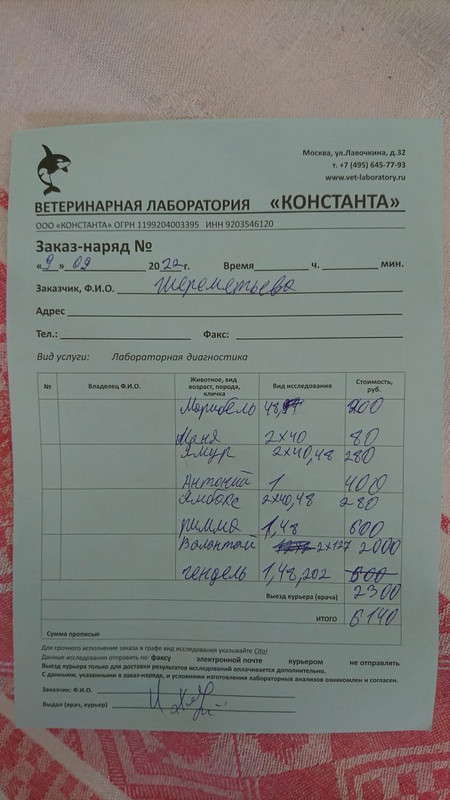 Москва, ул.Лавочкина, д.32
т. +7 (495) 645-77-93
www.vet-laboratory.ru
ВЕТЕРИНАРНАЯ ЛАБОРАТОРИЯ «КОНСТАНТА»
ООО «КОНСТАНТА» ОГРН 1199204003395 ИНН 9203546120
Заказ-наряд №
«9» 09 2022г. Время ч. мин.
Заказчик, Ф.И.О. Шереметьева
Адрес
Тел.: Факс:
Вид услуги: Лабораторная диагностика
№ Владелец Ф.И.О. Животное, вид возраст, порода, кличка Вид исследования Стоимость, руб.
Марибель 48, 200
Маня 2х40 80
Ямур 2х40,48 280
Антоний 1 400
Ямбакс 2х40,48 280
Римма 1,48 600
Валантай 2х127 2000
Гендель 1,48,202 600
Выезд курьера (врача) 2300
ИТОГО 6140
Сумма прописью
Для срочного исполнения заказа в графе вид исследования указывайте Cito!
Данные исследования отправить по: факсу электронной почте курьером не отправлять
Выезд курьера только для доставки результатов исследований оплачивается дополнительно.
С данными, указанными в заказ-наряде, и условиями изготовления лабораторных анализов ознакомлен и согласен.
Заказчик: Ф.И.О.
Выдал (врач, курьер)